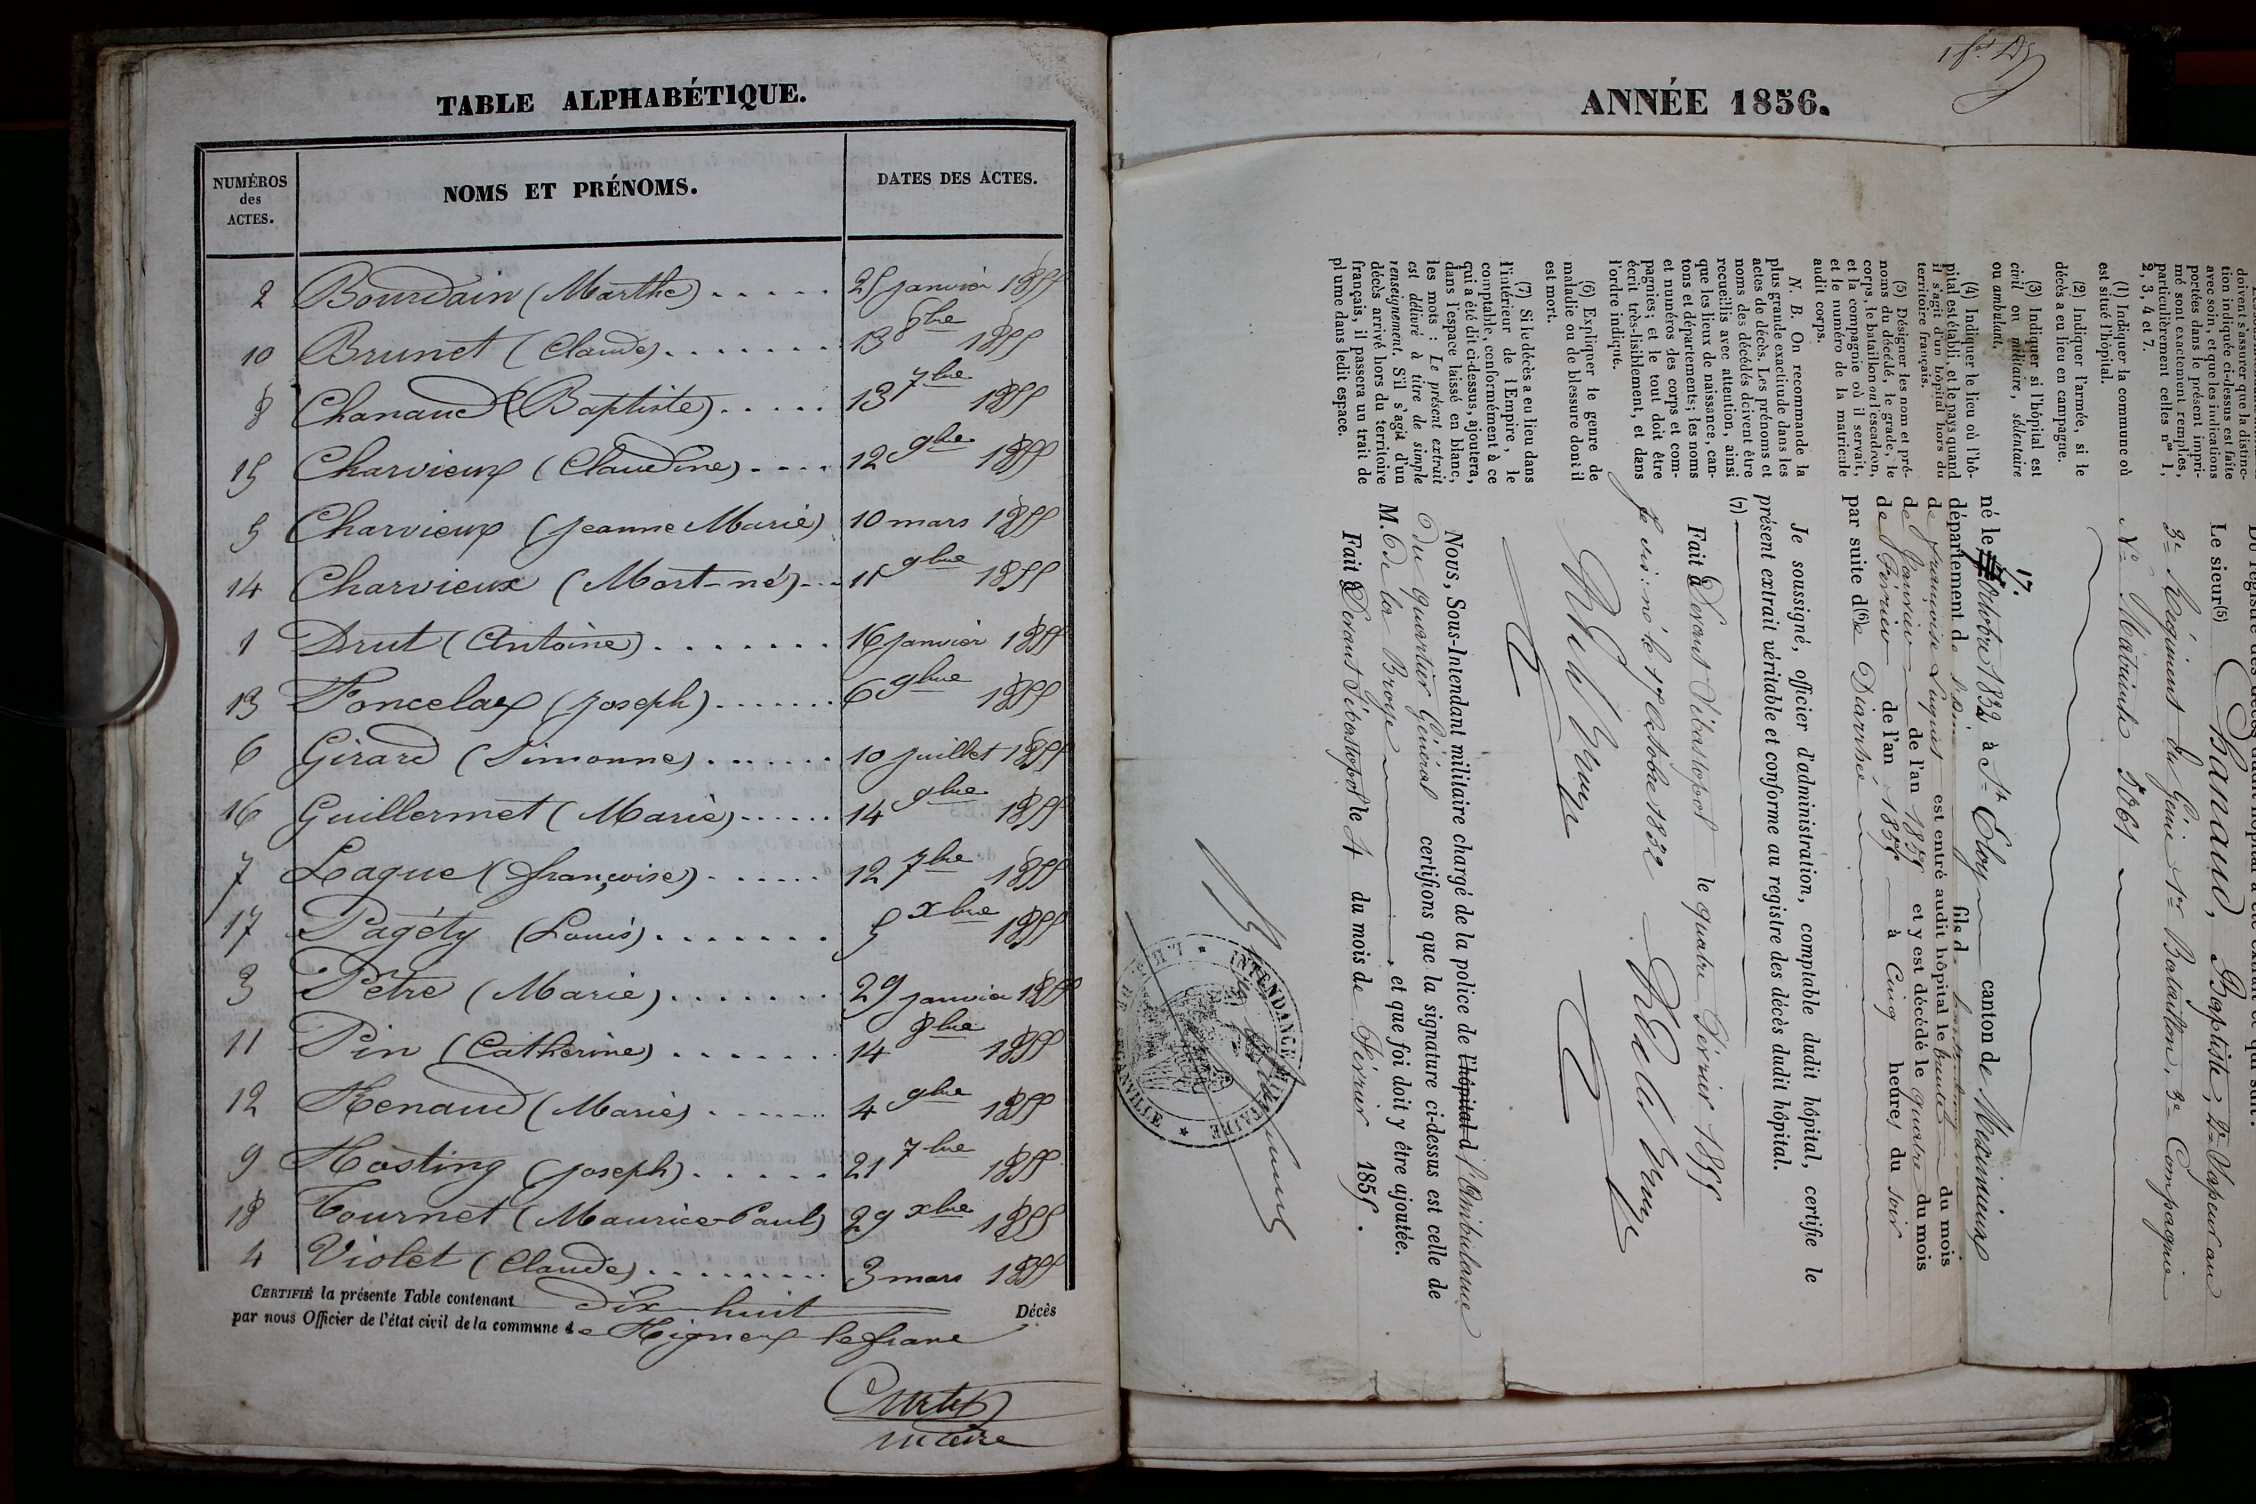 TABLE ALPHABÉTIQUE.
NUMÉROS des ACTES.
NOMS ET PRÉNOMS.
DATES DES ACTES.
2 Bourdain (Marthe) . . . . . 25 janvier 1855
10 Brunet (Claude) . . . . . . . 13 8bre 1855
8 Chanaud (Baptiste) . . . . . 13 7bre 1855
15 Charvieux (Claudine) . . . . 12 9bre 1855
5 Charvieux (Jeanne Marie) 10 mars 1855
14 Charvieux (Mort-né) . . . 11 9bre 1855
1 Drut (Antoine) . . . . . . . 16 janvier 1855
13 Poncelax (Joseph) . . . . . . . 6 9bre 1855
6 Girard (Simonne) . . . . . . 10 juillet 1855
16 Guillermet (Marie) . . . . . . 14 9bre 1855
7 Lague (françoise) . . . . . . 12 7bre 1855
17 Pagéty (Louis) . . . . . . . 5 xbre 1855
3 Pètre (Marie) . . . . . . . 29 janvier 1855
11 Pin (Catherine) . . . . . . . 14 8bre 1855
12 Renaud (Marie) . . . . . . 4 9bre 1855
9 Rosting (Joseph) . . . . . 21 7bre 1855
18 Tournet (Maurice-Paul) 29 xbre 1855
4 Violet (Claude) . . . . . . . . . 3 mars 1855
CERTIFIÉ la présente Table contenant Dix-huit Décès
par nous Officier de l'état civil de la commune de Rigneux le franc
ANNÉE 1856.
Le sieur (5) Chanaud, Baptiste, 2e Sapeur au
3e Régiment du Génie 1er Bataillon, 3e Compagnie
No Matricule 5061
né le 17. Octobre 1832 à St Eloy canton de Meximieux
département de l'Ain fils de
de françoise est entré audit hôpital le trente du mois
de Janvier de l'an 1855 et y est décédé le quatre du mois
de Février de l'an 1855 à Cinq heures du soir
par suite d(6)e Diarrhée
Je soussigné, officier d'administration, comptable dudit hôpital, certifie le
présent extrait véritable et conforme au registre des décès dudit hôpital.
(7)
Fait à Devant Sébastopol le quatre Février 1855
Je dis: né le 17 Octobre 1832
Nous, Sous-Intendant militaire chargé de la police de l'hôpital d l'Ambulance
du Quartier Général certifions que la signature ci-dessus est celle de
M. De la Broye, et que foi doit y être ajoutée.
Fait à Devant Sébastopol le 4 du mois de Février 1855.
doivent s'assurer que la distinc-
tion indiquée ci-dessus est faite
avec soin, et que les indications
portées dans le présent impri-
mé sont exactement remplies,
particulièrement celles nos 1,
2, 3, 4 et 7.
(1) Indiquer la commune où
est situé l'hôpital.
(2) Indiquer l'armée, si le
décès a eu lieu en campagne.
(3) Indiquer si l'hôpital est
civil ou militaire, sédentaire
ou ambulant.
(4) Indiquer le lieu où l'hô-
pital est établi, et le pays quand
il s'agit d'un hôpital hors du
territoire français.
(5) Désigner les nom et pré-
noms du décédé, le grade, le
corps, le bataillon ou l'escadron,
et la compagnie où il servait,
et le numéro de la matricule
audit corps.
N. B. On recommande la
plus grande exactitude dans les
actes de décès. Les prénoms et
noms des décédés doivent être
recueillis avec attention, ainsi
que les lieux de naissance, can-
tons et départements; les noms
et numéros des corps et com-
pagnies; et le tout doit être
écrit très-lisiblement, et dans
l'ordre indiqué.
(6) Expliquer le genre de
maladie ou de blessure dont il
est mort.
(7) Si le décès a eu lieu dans
l'intérieur de l'Empire, le
comptable, conformément à ce
qui a été dit ci-dessus, ajoutera,
dans l'espace laissé en blanc,
les mots : Le présent extrait
est délivré à titre de simple
renseignement. S'il s'agit d'un
décès arrivé hors du territoire
français, il passera un trait de
plume dans ledit espace.
INTENDANCE MILITAIRE